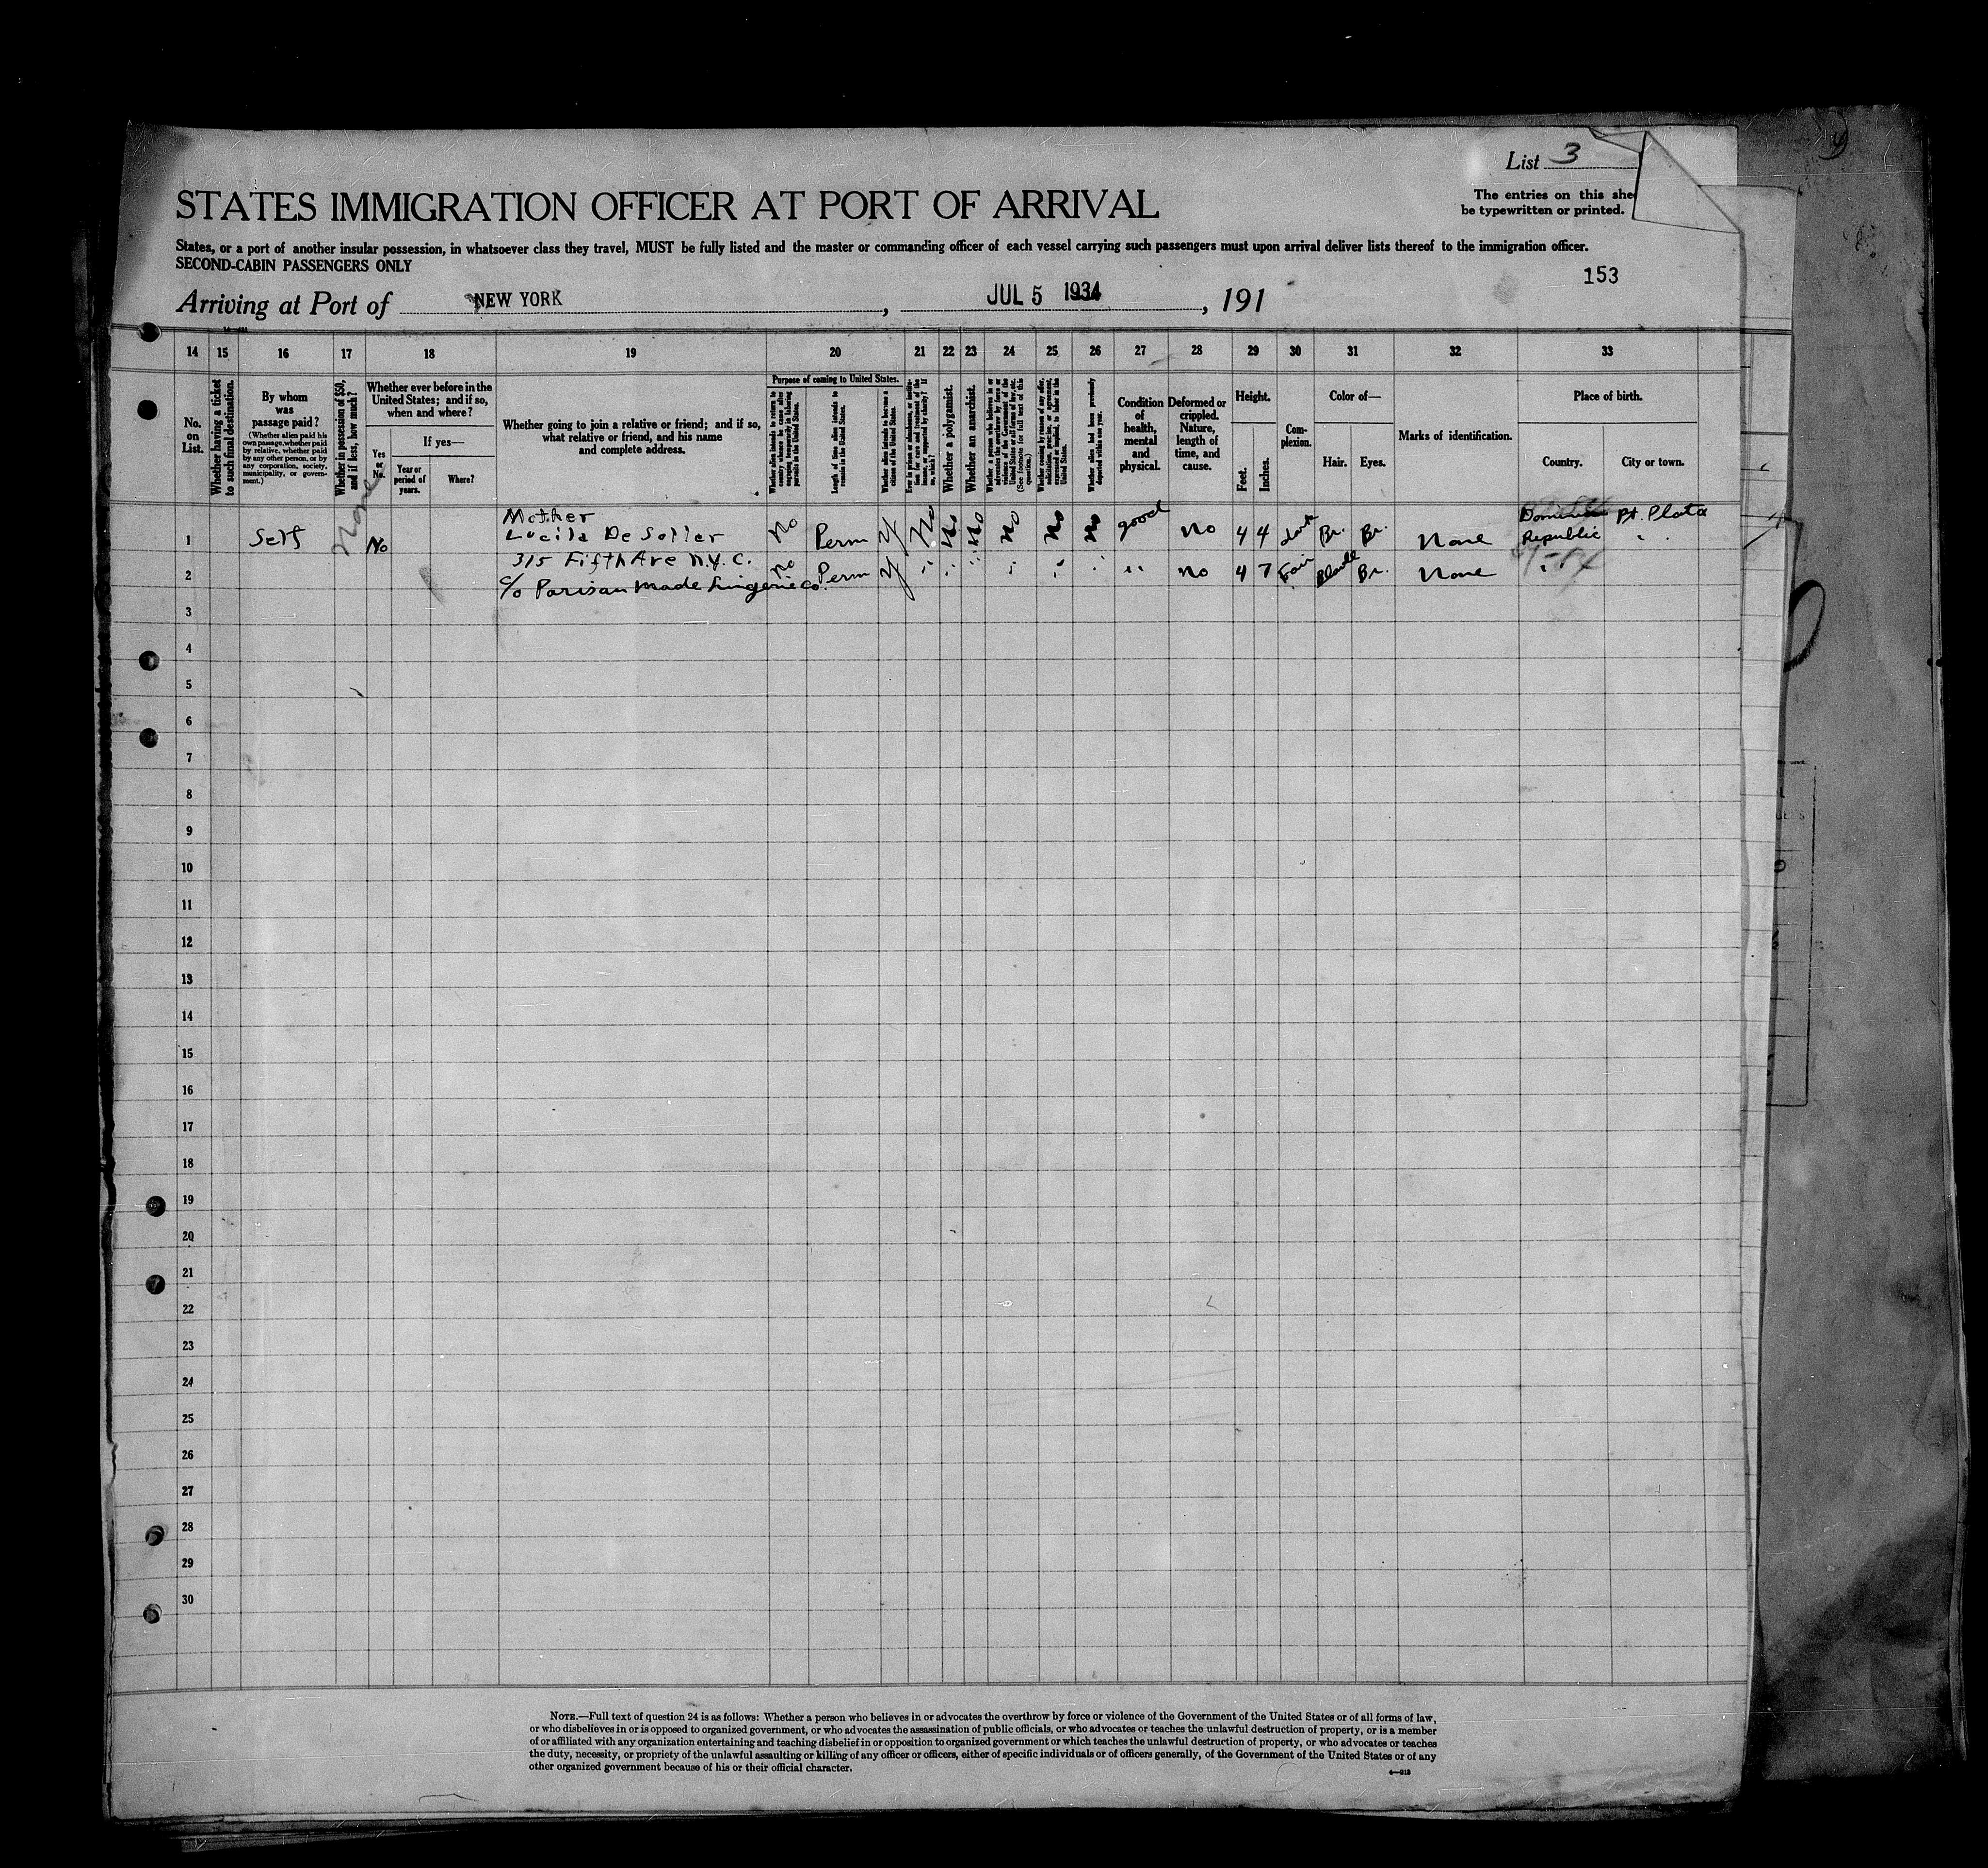 List 3
STATES IMMIGRATION OFFICER AT PORT OF ARRIVAL
The entries on this she
be typewritten or printed.
States, or a port of another insular possession, in whatsoever class they travel, MUST be fully listed and the master or commanding officer of each vessel carrying such passengers must upon arrival deliver lists thereof to the immigration officer.
SECOND-CABIN PASSENGERS ONLY
153
Arriving at Port of NEW YORK, JUL 5 1934, 191
14 15 16 17 18 19 20 21 22 23 24 25 26 27 28 29 30 31 32 33
No. on List.
Whether having a ticket to such final destination.
By whom was passage paid?
(Whether alien paid his own passage, whether paid by relative, whether paid by any other person, or by any corporation, society, municipality, or government.)
Whether in possession of $50, and if less, how much?
Whether ever before in the United States; and if so, when and where?
Yes or No.
If yes—
Year or period of years.
Where?
Whether going to join a relative or friend; and if so, what relative or friend, and his name and complete address.
Purpose of coming to United States.
Length of time alien intends to remain in the United States.
Whether alien intends to become a citizen of the United States.
Whether a polygamist.
Whether an anarchist.
Whether alien had been previously deported within one year.
Condition of health, mental and physical.
Deformed or crippled. Nature, length of time, and cause.
Height.
Feet.
Inches.
Complexion.
Color of—
Hair.
Eyes.
Marks of identification.
Place of birth.
Country.
City or town.
1 Self None No Mother No Perm No No No No No No good No 4 4 Dark Br. Br. None Republic Pt. Plata
Lucila De Soller
315 Fifth Ave N.Y.C.
2 no Perm " " " " " " " no 4 7 Fair Br. None
c/o Parisan made Lingerie co.
3
4
5
6
7
8
9
10
11
12
13
14
15
16
17
18
19
20
21
22
23
24
25
26
27
28
29
30
NOTE.—Full text of question 24 is as follows: Whether a person who believes in or advocates the overthrow by force or violence of the Government of the United States or of all forms of law,
or who disbelieves in or is opposed to organized government, or who advocates the assassination of public officials, or who advocates or teaches the unlawful destruction of property, or is a member
of or affiliated with any organization entertaining and teaching disbelief in or opposition to organized government or which teaches the unlawful destruction of property, or who advocates or teaches
the duty, necessity, or propriety of the unlawful assaulting or killing of any officer or officers, either of specific individuals or of officers generally, of the Government of the United States or of any
other organized government because of his or their official character.